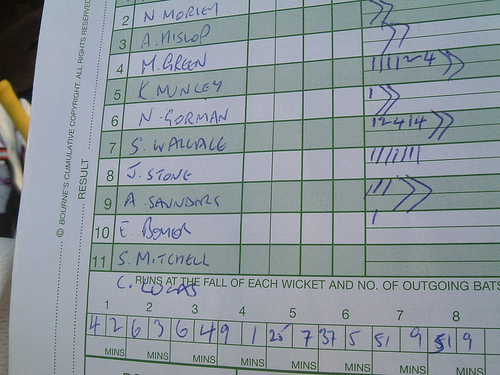 2 N. MORLEY
3 A. HISLOP
4 M. GREEN 1 1 1 1 2 - 4
5 K MUNCEY 1
6 N. GORMAN 1 2 - 4 1 4
7 S. WALLACE 1 1 1 1 1 1 1
8 J. STONE
9 A. SAUNDERS 1 1 1
10 E 1
11 S. MITCHELL
C. LUCAS
RUNS AT THE FALL OF EACH WICKET AND NO. OF OUTGOING BATS
1 2 3 4 5 6 7 8
4 2 6 3 6 4 49 1 25 7 37 5 51 9 51 9
MINS MINS MINS MINS MINS MINS MINS MINS
© BOURNE'S CUMULATIVE COPYRIGHT. ALL RIGHTS RESERVED
RESULT